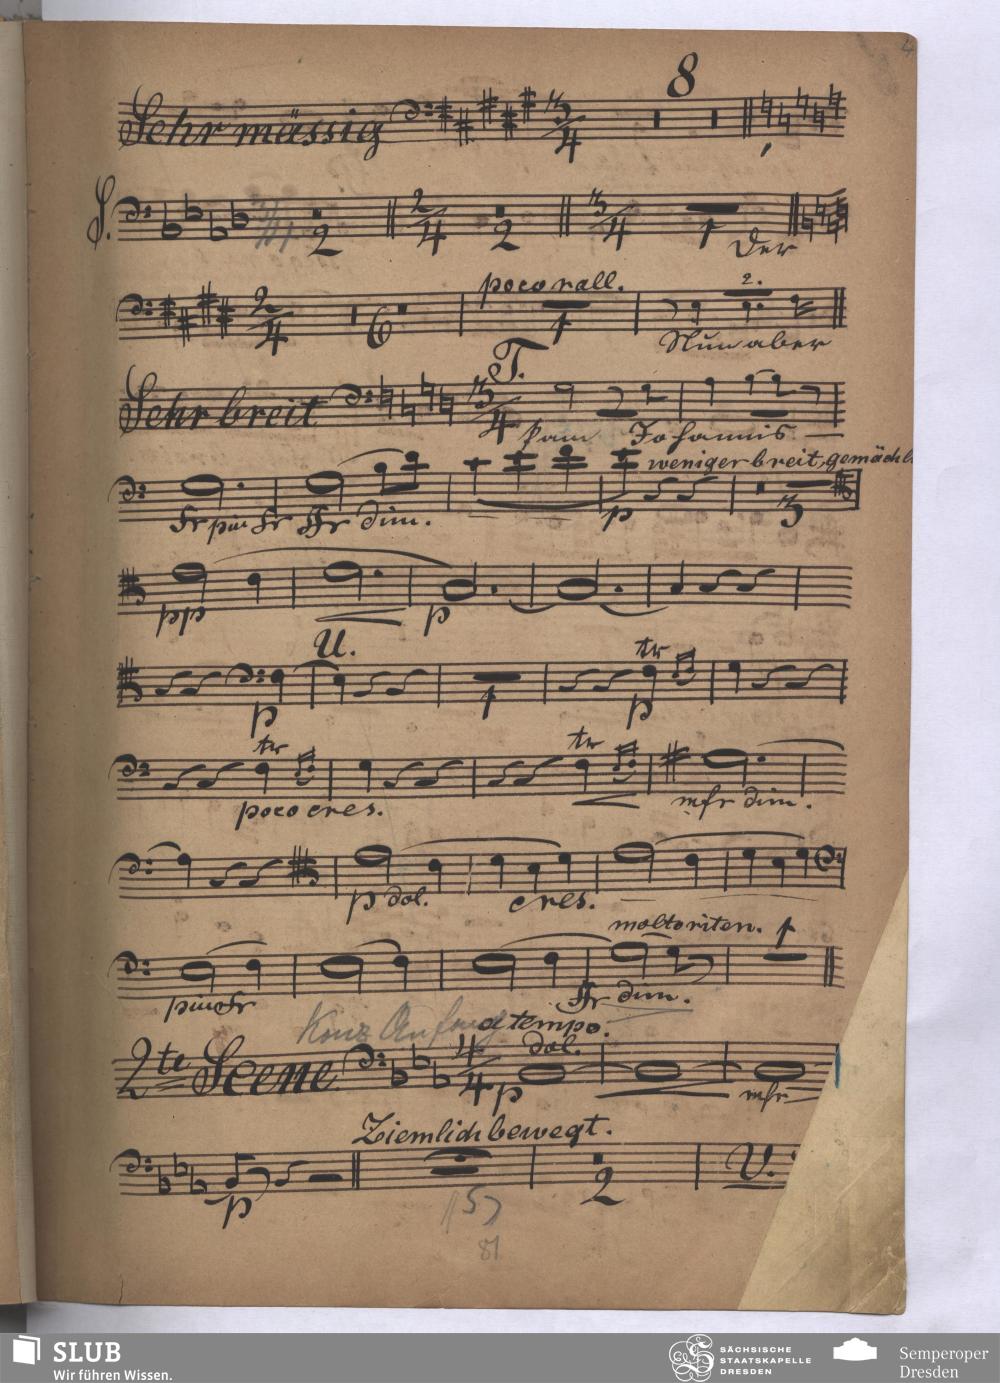 4
8
Sehr mässig 3/4
S. 2 2/4 2 3/4 1
Der
2/4 6 poco rall. 1 2.
Nun aber
T.
Sehr breit 3/4
kam Johannis
weniger breit, gemächl.
fr più fr ffr dim. p 3
pp p
U.
p 1 tr p
tr tr
poco cres. mfr dim.
p dol. cres.
molto riten. 1
più fr ffr dim.
Konz Anfang a tempo.
2te Scene 4/4 p dol. mfr
Ziemlich bewegt.
p 2 V.
15
81
SLUB
Wir führen Wissen.
SÄCHSISCHE
STAATSKAPELLE
DRESDEN
Semperoper
Dresden